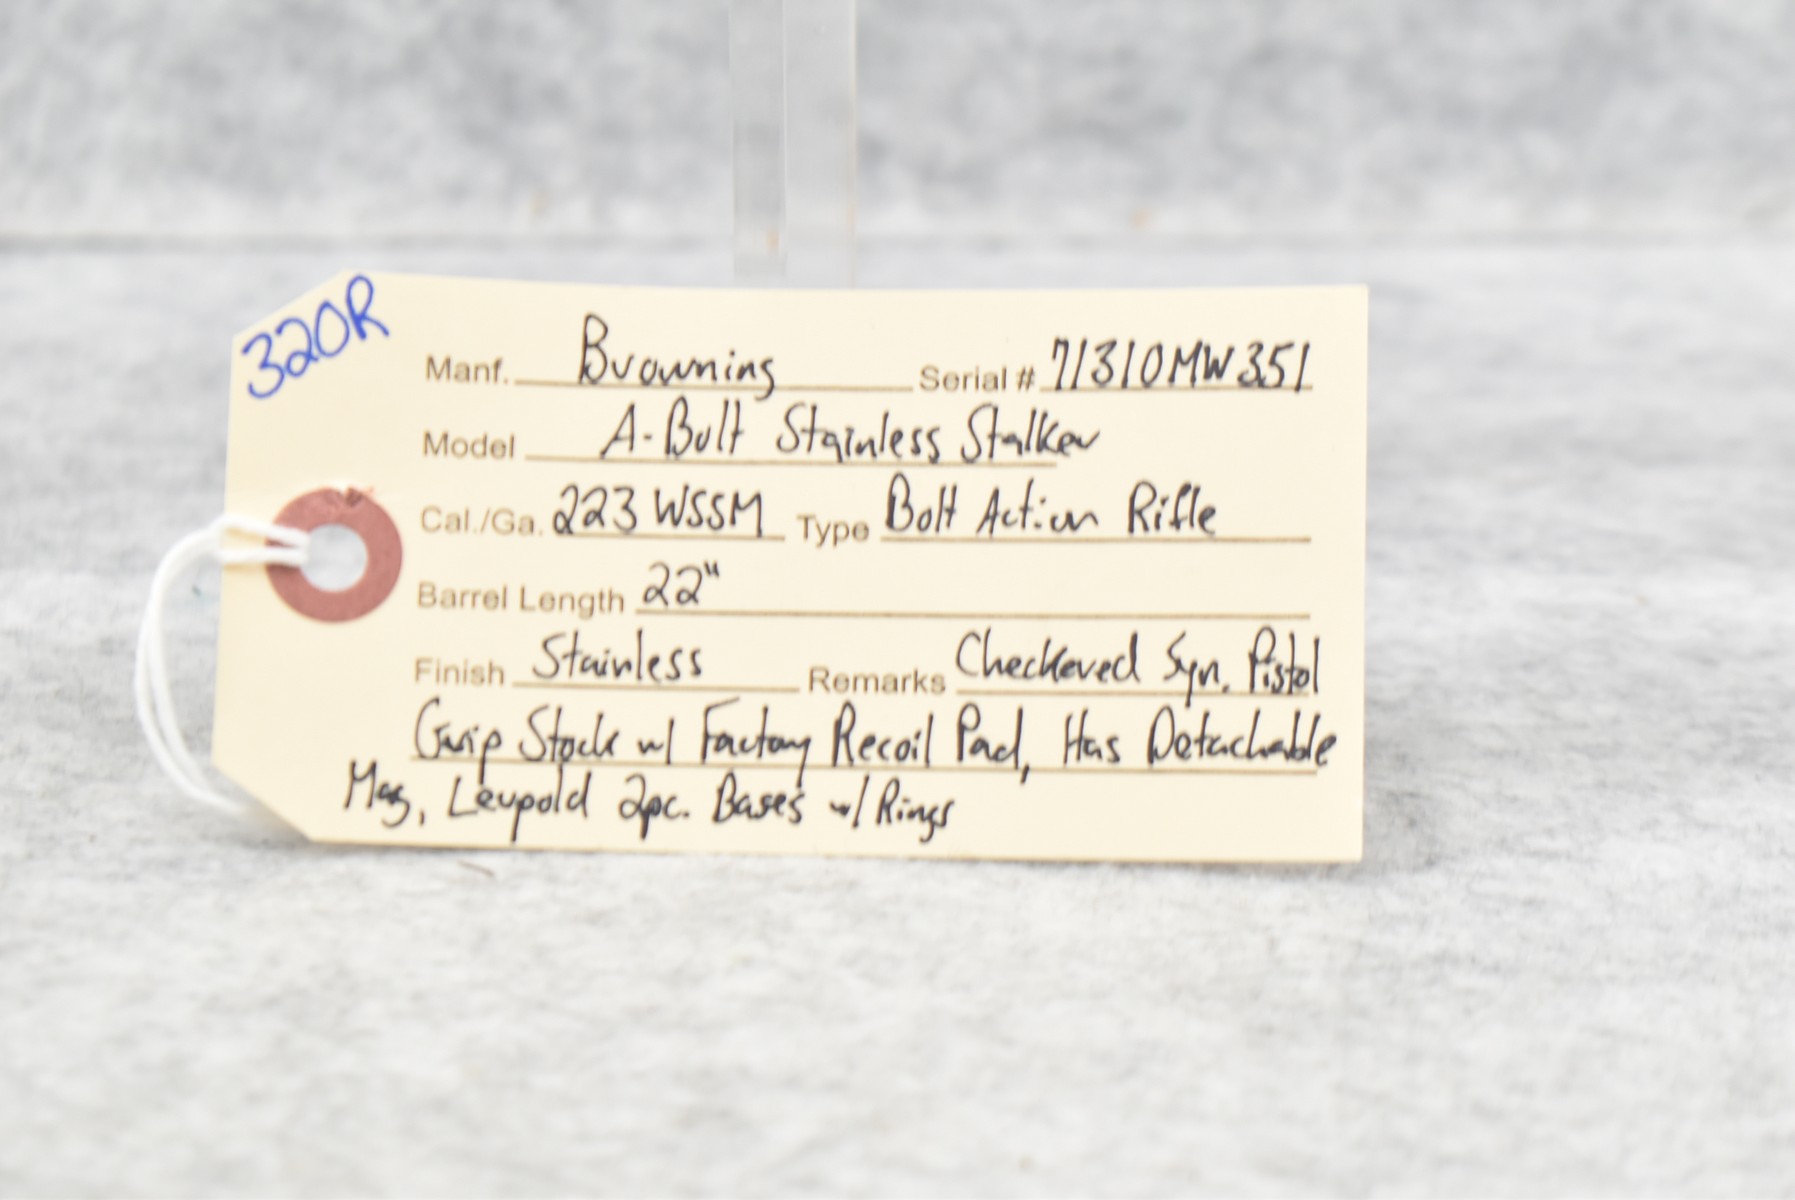 320R
Manf. Browning Serial # 71310MW351
Model A-Bolt Stainless Stalker
Cal./Ga. 223 WSSM Type Bolt Action Rifle
Barrel Length 22"
Finish Stainless Remarks Checkered Syn. Pistol
Grip Stock w/ Factory Recoil Pad, Has Detachable
Mag, Leupold 2pc. Bases w/ Rings